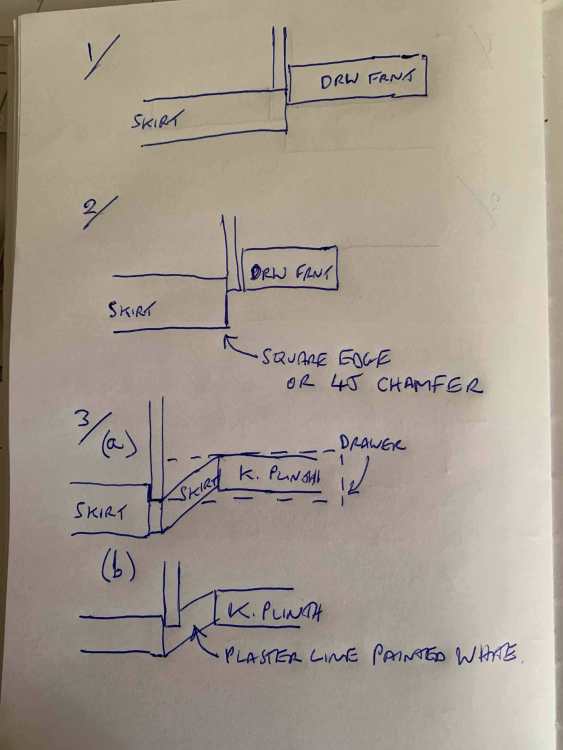 1/
DRW FRNT
SKIRT
2/
DRW FRNT
SKIRT
SQUARE EDGE
OR 45 CHAMFER
3/
(a)
DRAWER
K. PLINTH
SKIRT
SKIRT
(b)
K. PLINTH
PLASTER LINE PAINTED WHITE.